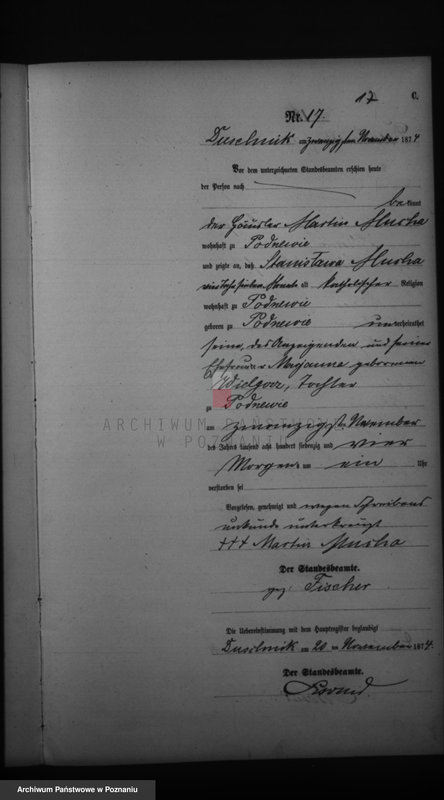 17 C.
Nr. 17.
Duschnik am zwanzigsten November 1874
Vor dem unterzeichneten Standesbeamten erschien heute
der Person nach
bekannt
der Häusler Martin Musha
wohnhaft zu Podnewie
und zeigte an, daß Stanislawa Musha
vier Jahr sieben Monate alt katholischer Religion
wohnhaft zu Podnewie
geboren zu Podnewie unverheirathet
seine, des Anzeigenden und seiner
Ehefrau Majanna geborenen
Wielgosz, Tochter
zu Podnewie
am zwanzigsten November
des Jahres tausend acht hundert siebenzig und vier
Morgens um ein Uhr
verstorben sei
Vorgelesen, genehmigt und wegen Schreibens
unkunde unterkreuzt
+++ Martin Musha
Der Standesbeamte.
gez. Fischer
Die Uebereinstimmung mit dem Hauptregister beglaubigt
Duschnik am 20 ten November 1874.
Der Standesbeamte.
ARCHIWUM PAŃSTWOWE
W POZNANIU
Archiwum Państwowe w Poznaniu